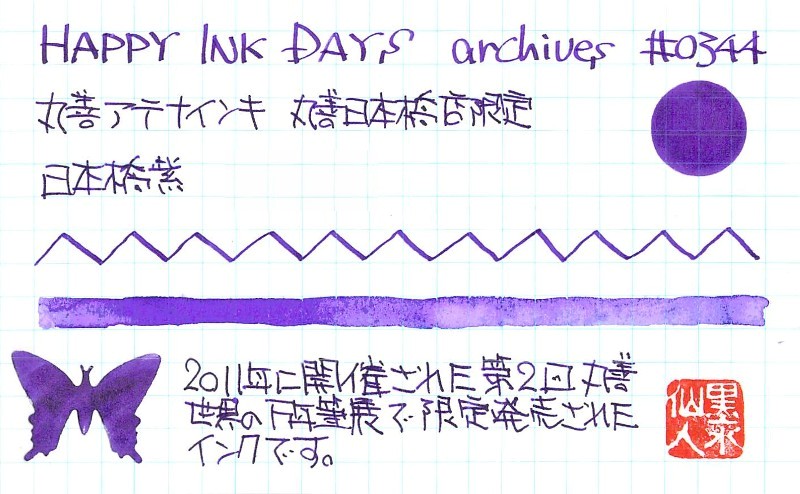 HAPPY INK DAYS archives #0344
丸善アテナインキ 丸善日本橋店限定
日本橋紫
2011年に開催された第2回丸善
世界の万年筆展で限定発売された
インクです。
墨水
仙人